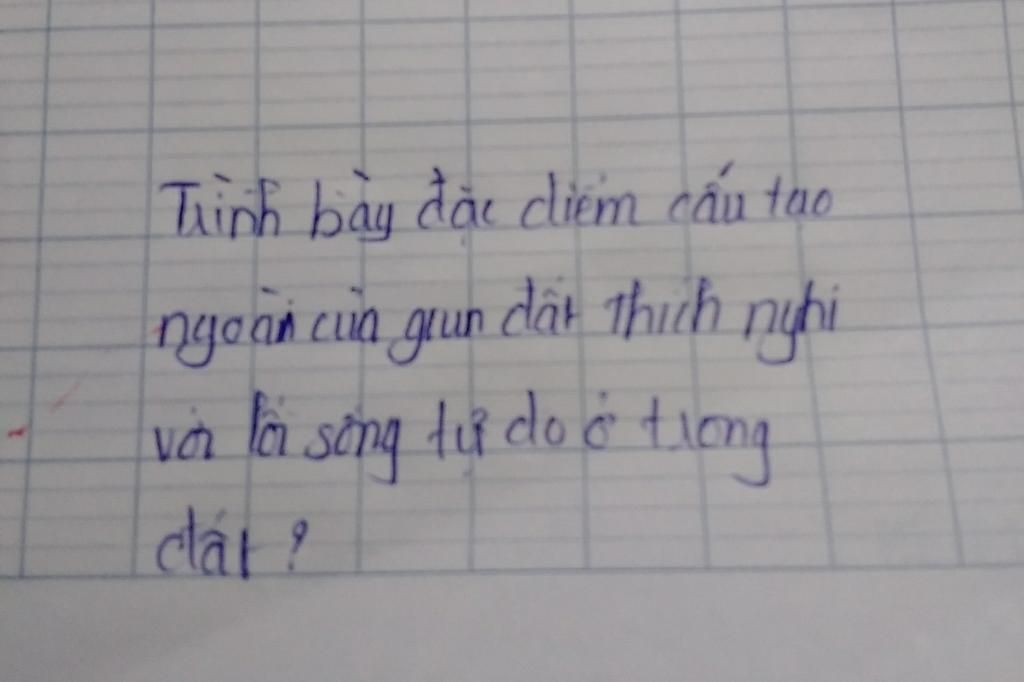 Trình bày đặc điểm cấu tạo
ngoài của giun đất thích nghi
với lối sống tự do ở trong
đất?